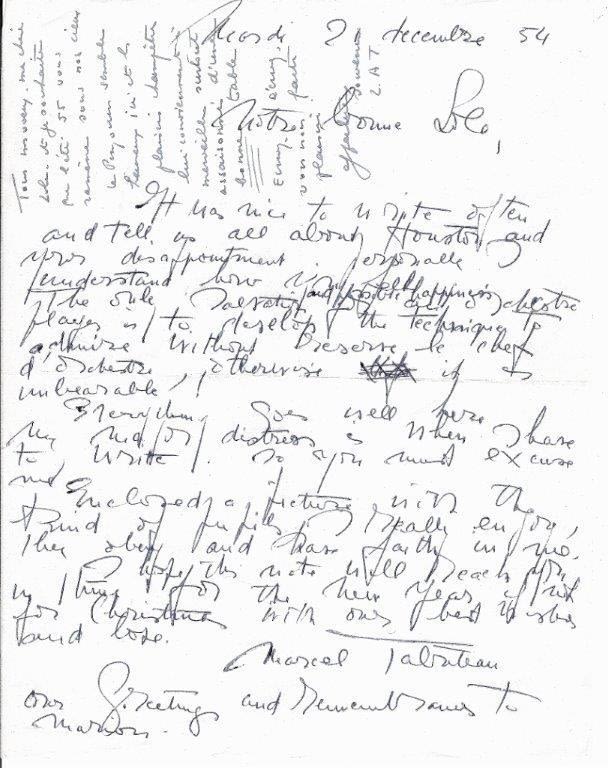 2 decembre 54
Notre bonne Lola,
It was nice to write often
and tell us all about Houston and
your disappointment. Personally I
understand how you feel
The only salvation and possible happiness of an orchestra
player is to develop the technique to
admire without reserve le chef
d'orchestre, otherwise it is
unbearable!
Everything goes well here
my major distress is when I have
to write. So you must excuse
me
Enclosed a picture with the
kind of pupils I really enjoy,
they obey and have faith in me.
I hope this note will reach you
in time for the New Year if not
for Christmas with our best wishes
and love.
Marcel Tabuteau
our Greetings and Remembrances to
Marion.
Tous mes voeux, ma chère
Lola et je souhaite
que l'été 55 vous
ramène sous nos cieux
le Puy, ensemble
plaisirs champêtres
merveilles surtout
assaisonnés d'une
bonne table
L.A.T.